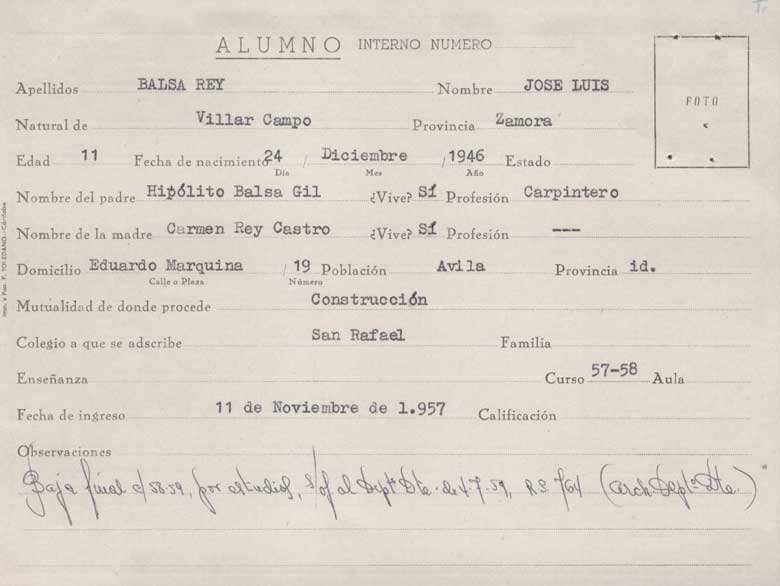 ALUMNO INTERNO NUMERO
FOTO
Apellidos BALSA REY Nombre JOSE LUIS
Natural de Villar Campo Provincia Zamora
Edad 11 Fecha de nacimiento 24 / Diciembre / 1946 Estado
Día Mes Año
Nombre del padre Hipólito Balsa Gil ¿Vive? Sí Profesión Carpintero
Nombre de la madre Carmen Rey Castro ¿Vive? Sí Profesión ---
Domicilio Eduardo Marquina / 19 Población Avila Provincia id.
Calle o Plaza Número
Mutualidad de donde procede Construcción
Colegio a que se adscribe San Rafael Familia
Enseñanza Curso 57-58 Aula
Fecha de ingreso 11 de Noviembre de 1.957 Calificación
Observaciones
Baja final c/58-59, por estudios, s/of al Deptº Dte. de 4-7-59, R.S. 764 (Arch. Deptº Dte.)
Imp. y Pap. F. TOLEDANO.-Córdoba